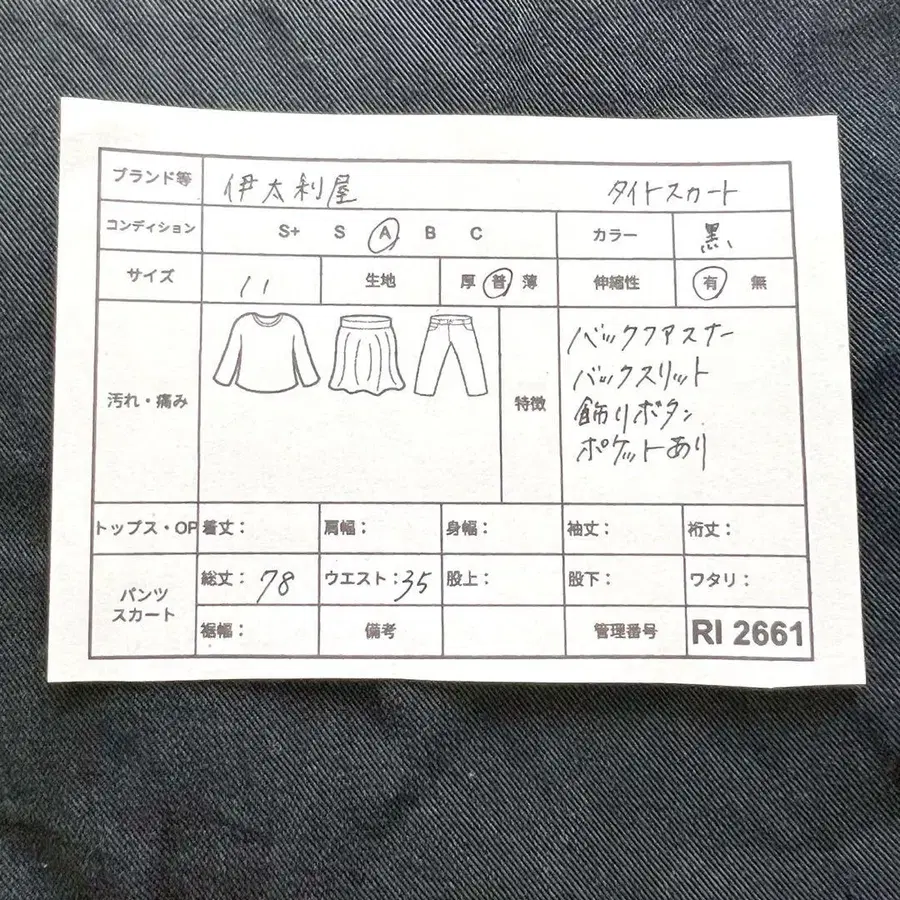 ブランド等 伊太利屋 タイトスカート
コンディション S+ S A B C カラー 黒
サイズ 11 生地 厚 普 薄 伸縮性 有 無
汚れ・痛み 特徴
バックファスナー
バックスリット
飾りボタン
ポケットあり
トップス・OP 着丈: 肩幅: 身幅: 袖丈: 裄丈:
パンツ
スカート
総丈: 78 ウエスト: 35 股上: 股下: ワタリ:
裾幅: 備考 管理番号 RI 2661